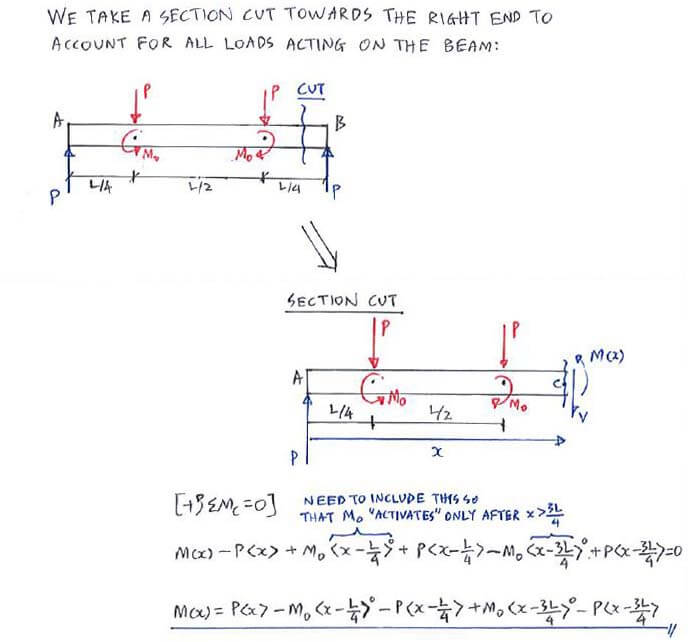 WE TAKE A SECTION CUT TOWARDS THE RIGHT END TO
ACCOUNT FOR ALL LOADS ACTING ON THE BEAM:
P P CUT
A B
M₀ M₀
P L/4 L/2 L/4 P
SECTION CUT
P P
M(x)
A C
M₀ M₀
L/4 L/2 V
P x
[+↺ΣM_C=0] NEED TO INCLUDE THIS SO
THAT M₀ "ACTIVATES" ONLY AFTER x>3L/4
M(x) - P<x> + M₀<x-L/4>⁰ + P<x-L/4> - M₀<x-3L/4>⁰ + P<x-3L/4> = 0
M(x) = P<x> - M₀<x-L/4>⁰ - P<x-L/4> + M₀<x-3L/4>⁰ - P<x-3L/4>